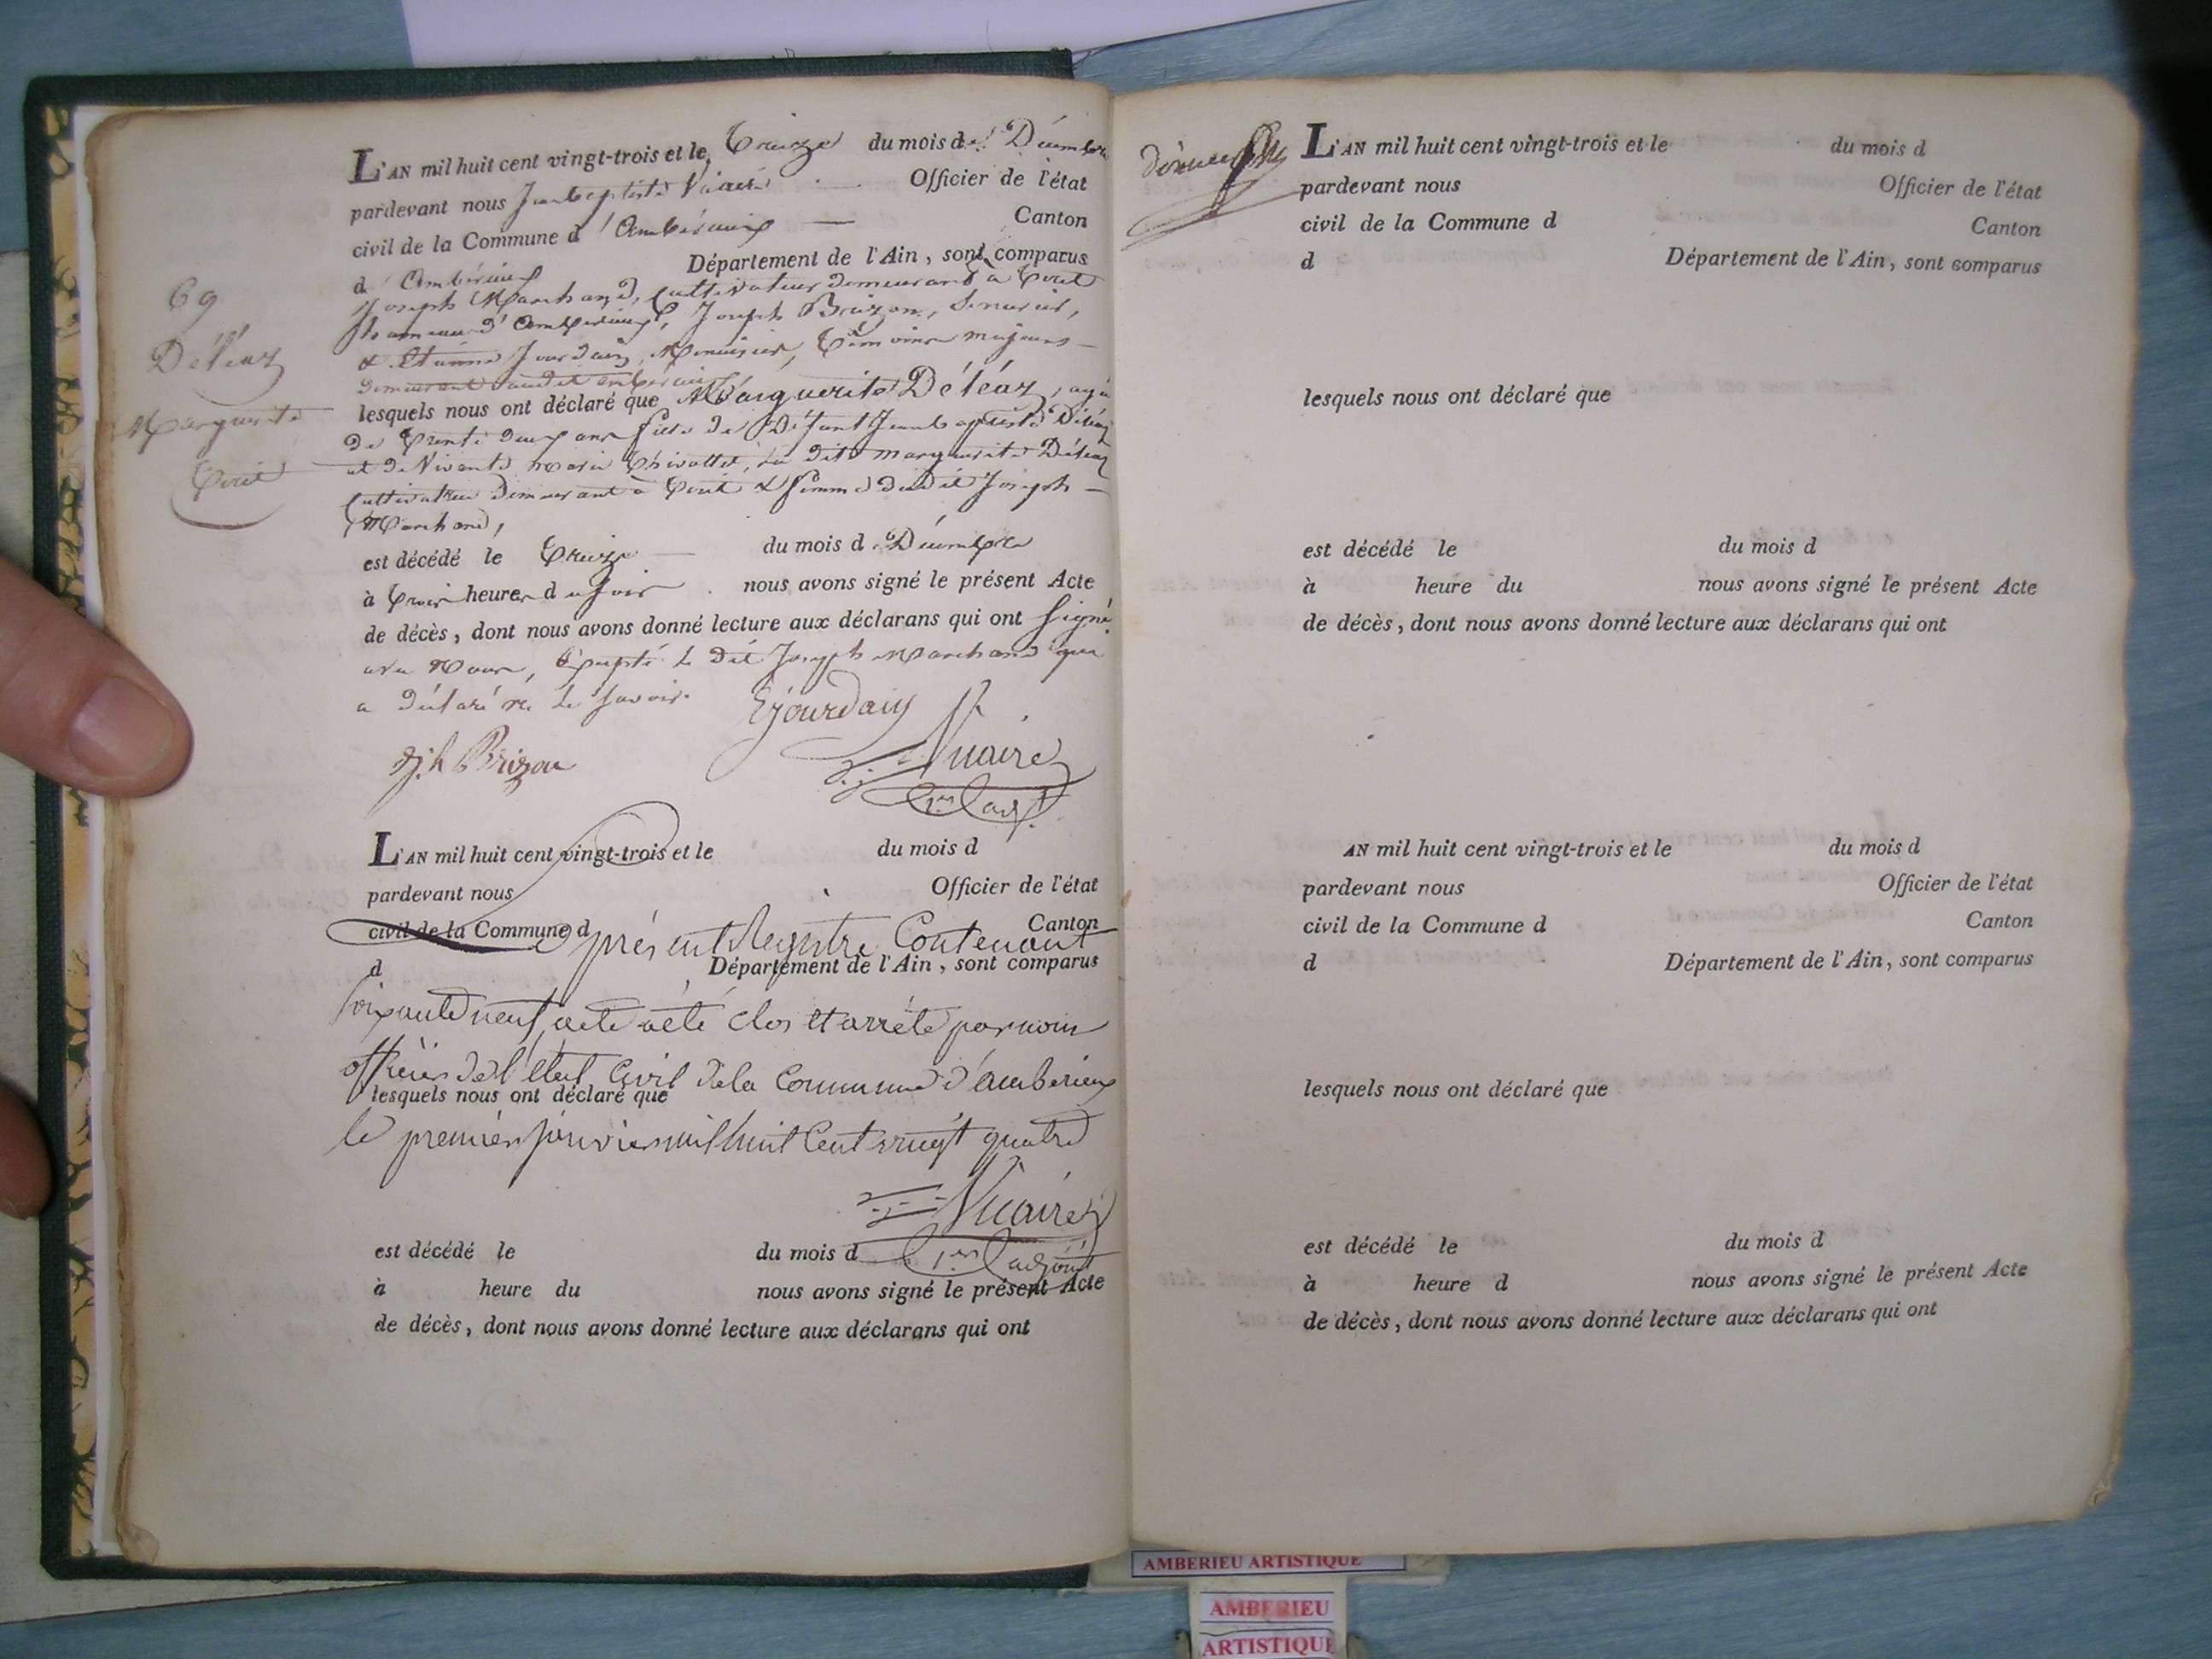 L'AN mil huit cent vingt-trois et le treize du mois de Décembre
pardevant nous Jean baptiste Vicaire Officier de l'état
civil de la Commune d'Ambérieux Canton
d'Ambérieux Département de l'Ain, sont comparus
Joseph Marchand, Cultivateur demeurant à Tiret
hameau d'Ambérieux, Joseph Brizon,
& Etienne Jourdain, Menuisier, témoins majeurs
demeurant audit ambérieux
69
Déléaz
Marguerite
Tiret
lesquels nous ont déclaré que Marguerite Déléaz, agée
de trente deux ans fille de Défunt Jean baptiste Déléaz
et de Vivante marie Chivallet, la dite marguerite Déléaz
Cultivatrice demeurant à Tiret & femme dudit Joseph
Marchand,
est décédé le treize du mois de Décembre
à trois heures du soir nous avons signé le présent Acte
de décès, dont nous avons donné lecture aux déclarans qui ont signé
avec nous, Excepté le dit Joseph Marchand qui
a déclaré ne le savoir.
EJourdain
Jph Brizon
Vicaire
1er adjt
L'AN mil huit cent vingt-trois et le du mois d
pardevant nous Officier de l'état
civil de la Commune d Canton
Le présent Registre Contenant
d Département de l'Ain, sont comparus
soixante neuf acte a été clos et arrêté par nous
officier de l'état Civil de la Commune d'amberieux
lesquels nous ont déclaré que
le premier janvier mil huit Cent vingt quatre
Vicaire
1er adjoint
est décédé le du mois d
à heure du nous avons signé le présent Acte
de décès, dont nous avons donné lecture aux déclarans qui ont
L'AN mil huit cent vingt-trois et le du mois d
pardevant nous Officier de l'état
civil de la Commune d Canton
d Département de l'Ain, sont comparus
lesquels nous ont déclaré que
est décédé le du mois d
à heure du nous avons signé le présent Acte
de décès, dont nous avons donné lecture aux déclarans qui ont
AN mil huit cent vingt-trois et le du mois d
pardevant nous Officier de l'état
civil de la Commune d Canton
d Département de l'Ain, sont comparus
lesquels nous ont déclaré que
est décédé le du mois d
à heure d nous avons signé le présent Acte
de décès, dont nous avons donné lecture aux déclarans qui ont
AMBERIEU ARTISTIQUE
AMBERIEU
ARTISTIQUE